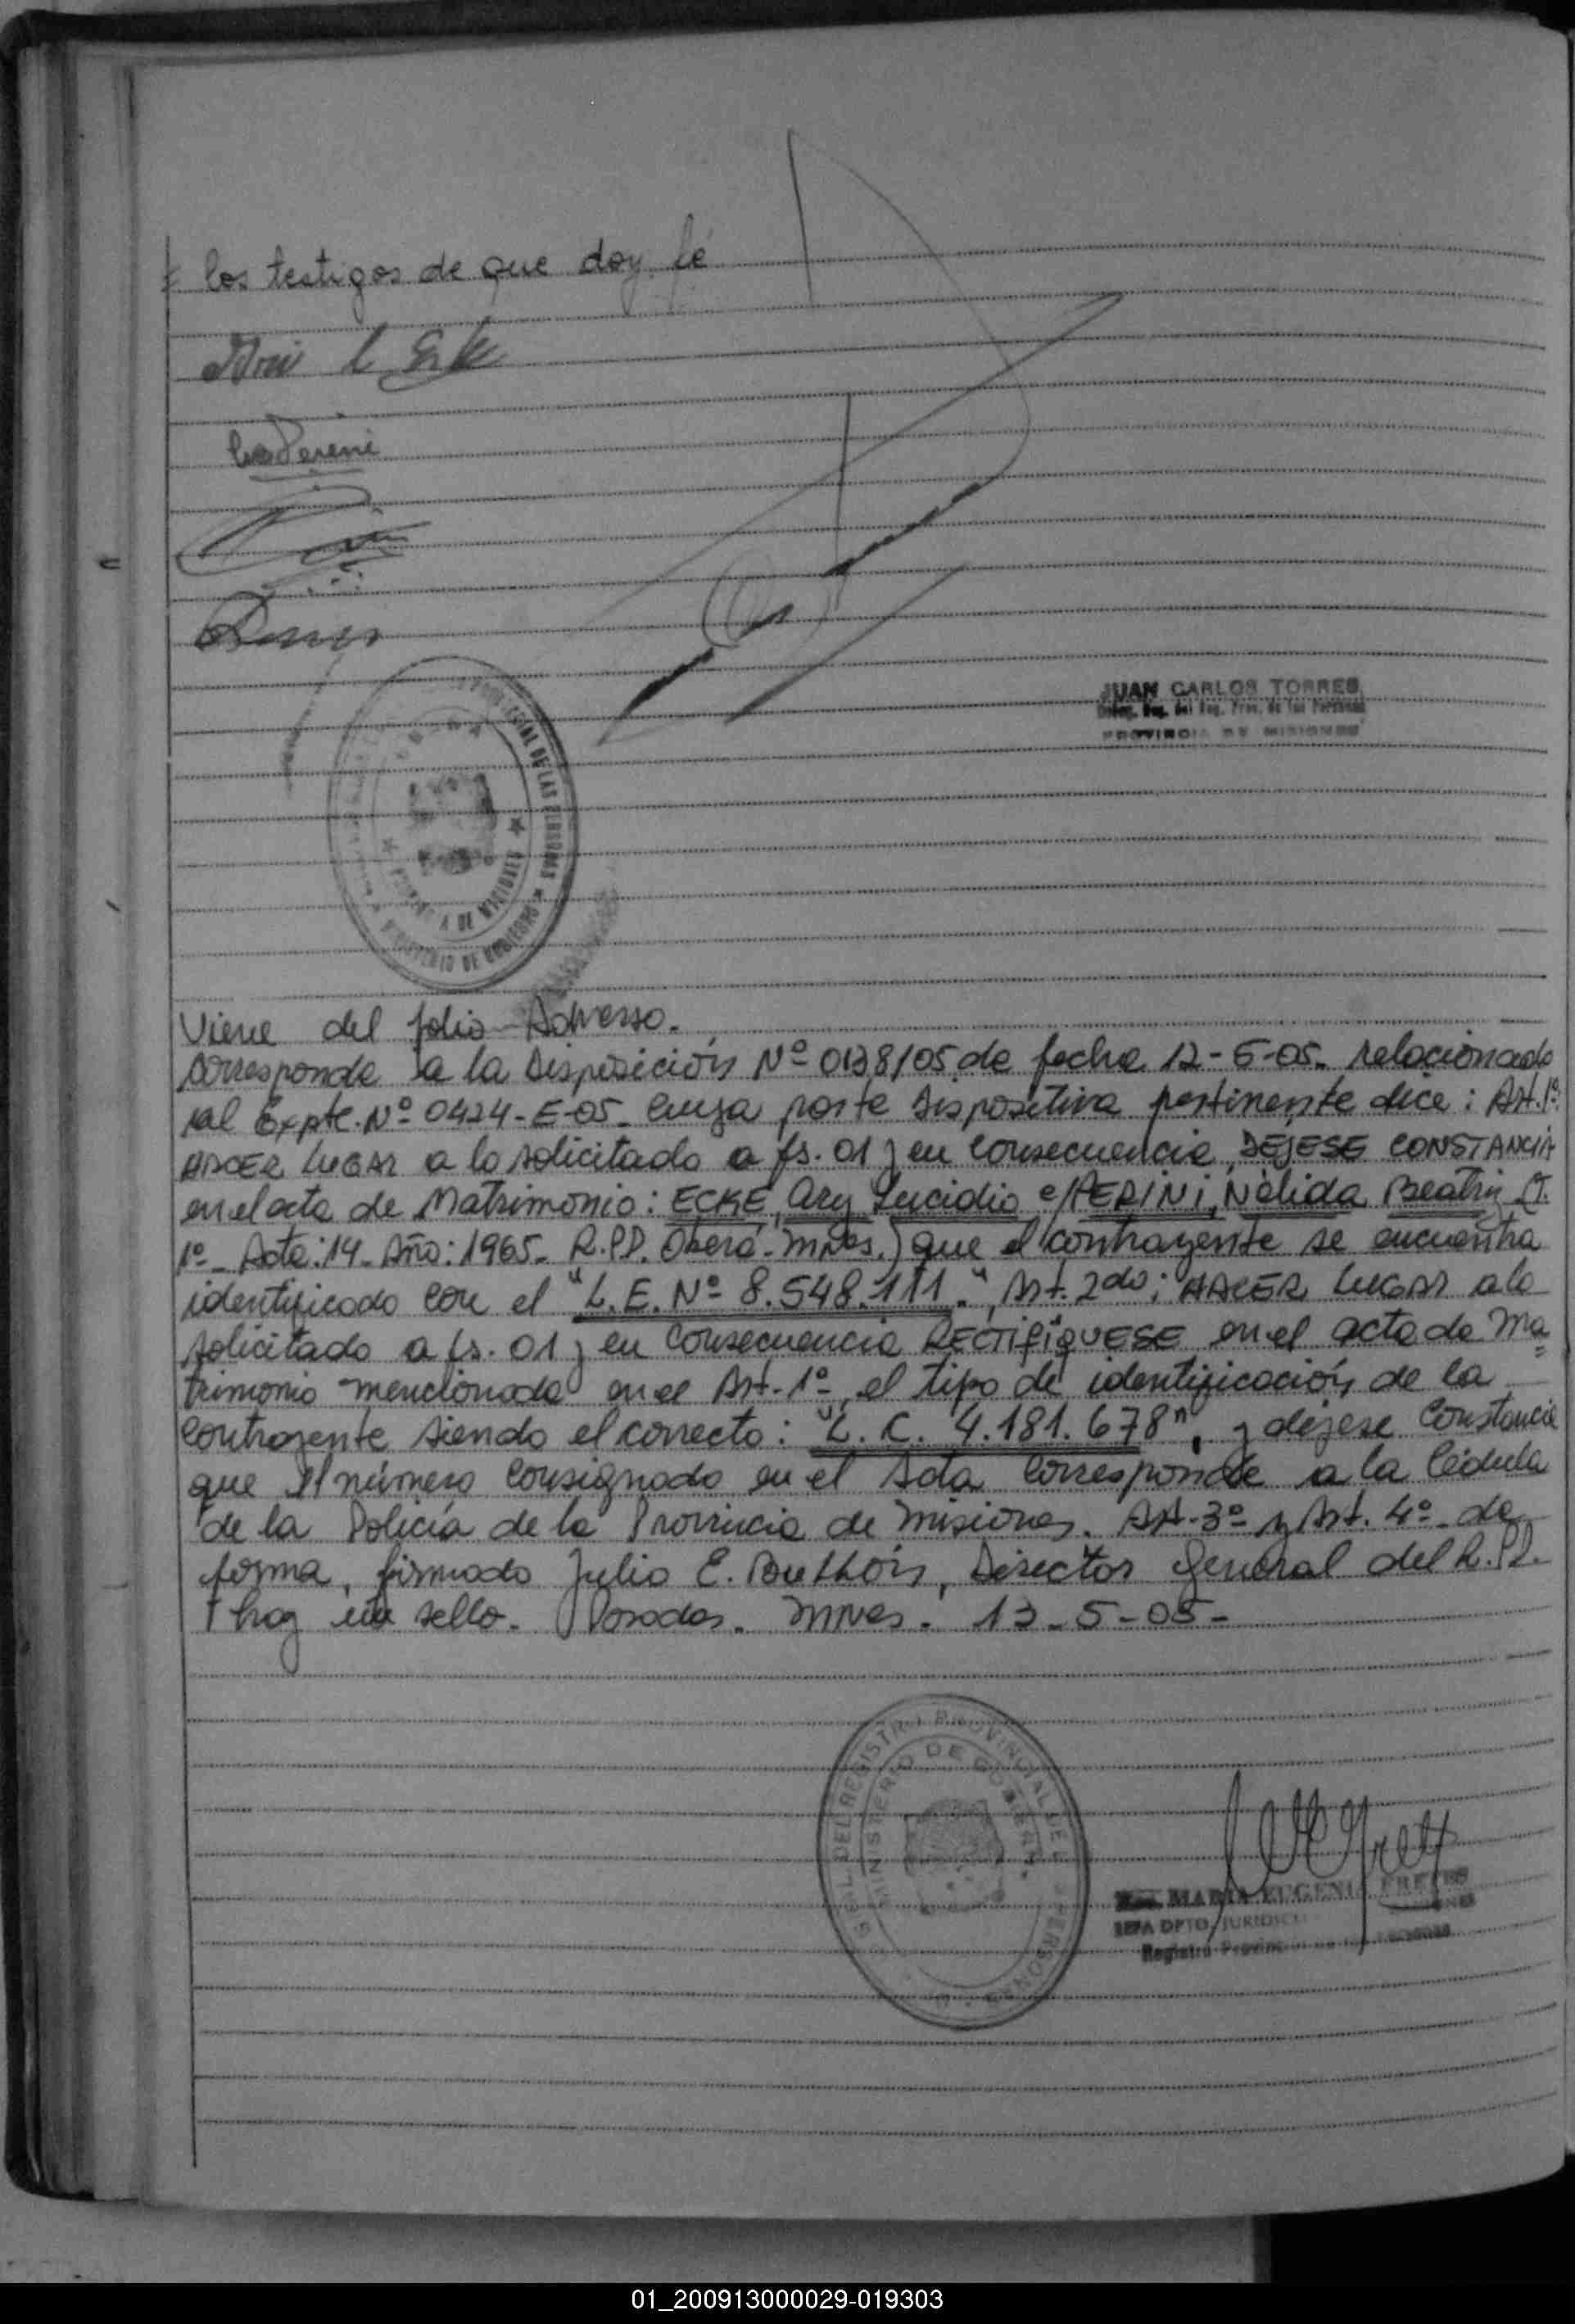 los testigos de que doy fé
Perini
JUAN CARLOS TORRES
PROVINCIA DE MISIONES
DE LAS PERSONAS
MINISTERIO DE GOBIERNO
Viene del folio Adverso.
Corresponde a la Disposición Nº 0138/05 de fecha 12-5-05. relacionado
al Expte. Nº 0424-E-05. cuya parte dispositiva pertinente dice: Art. 1º
HACER LUGAR a lo solicitado a fs. 01 y en consecuencia, DÉJESE CONSTANCIA
en el acta de Matrimonio: ECKE, Ary Lucidio c/PERINI, Nélida Beatriz (T.
1º- Acta: 14- Año: 1965- R.P.P. Oberá- Mnes.) que el contrayente se encuentra
identificado con el "L.E. Nº 8.548.111.", Art. 2do: HACER LUGAR a lo
solicitado a fs. 01 y en consecuencia RECTIFIQUESE en el acta de Ma=
trimonio mencionada en el Art. 1º, el tipo de identificación de la
contrayente siendo el correcto: "L. C. 4.181.678", y déjese constancia
que el número consignado en el Acta corresponde a la Cédula
de la Policía de la Provincia de Misiones. Art. 3º y Art. 4º de
forma, firmado Julio E. Director General del R.P.P.
Y hay un sello. Posadas. Mnes. 13-5-05-
DEL REGISTRO PROVINCIAL DE PERSONAS
MINISTERIO DE GOBIERNO
MARIA EUGENIA FRETES
JEFA DPTO. JURIDICO
Registro
01_200913000029-019303